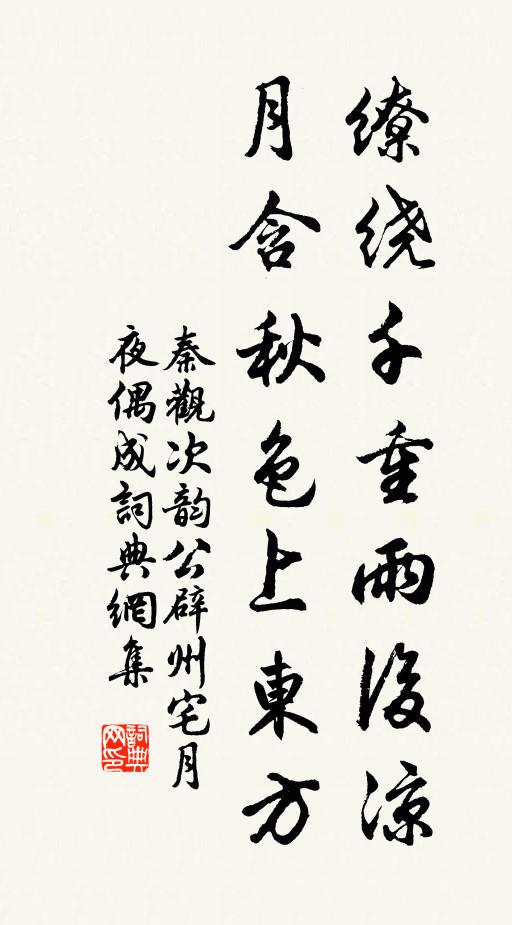 缭绕千重雨後凉
月含秋色上東方
秦觀次韵公辟州宅月
夜偶成詞典網集
詞典
网印